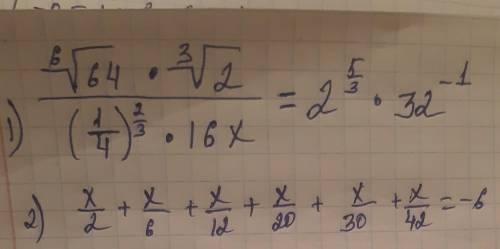 1) (⁶√64 · ³√2) / ((1/4)^(2/3) · 16x) = 2^(5/3) · 32^(-1)
2) x/2 + x/6 + x/12 + x/20 + x/30 + x/42 = -6